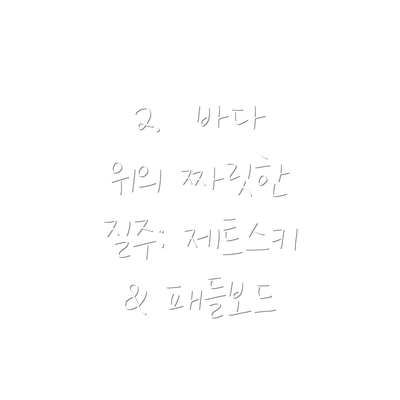 2. 바다
위의 짜릿한
질주: 제트스키
& 패들보드